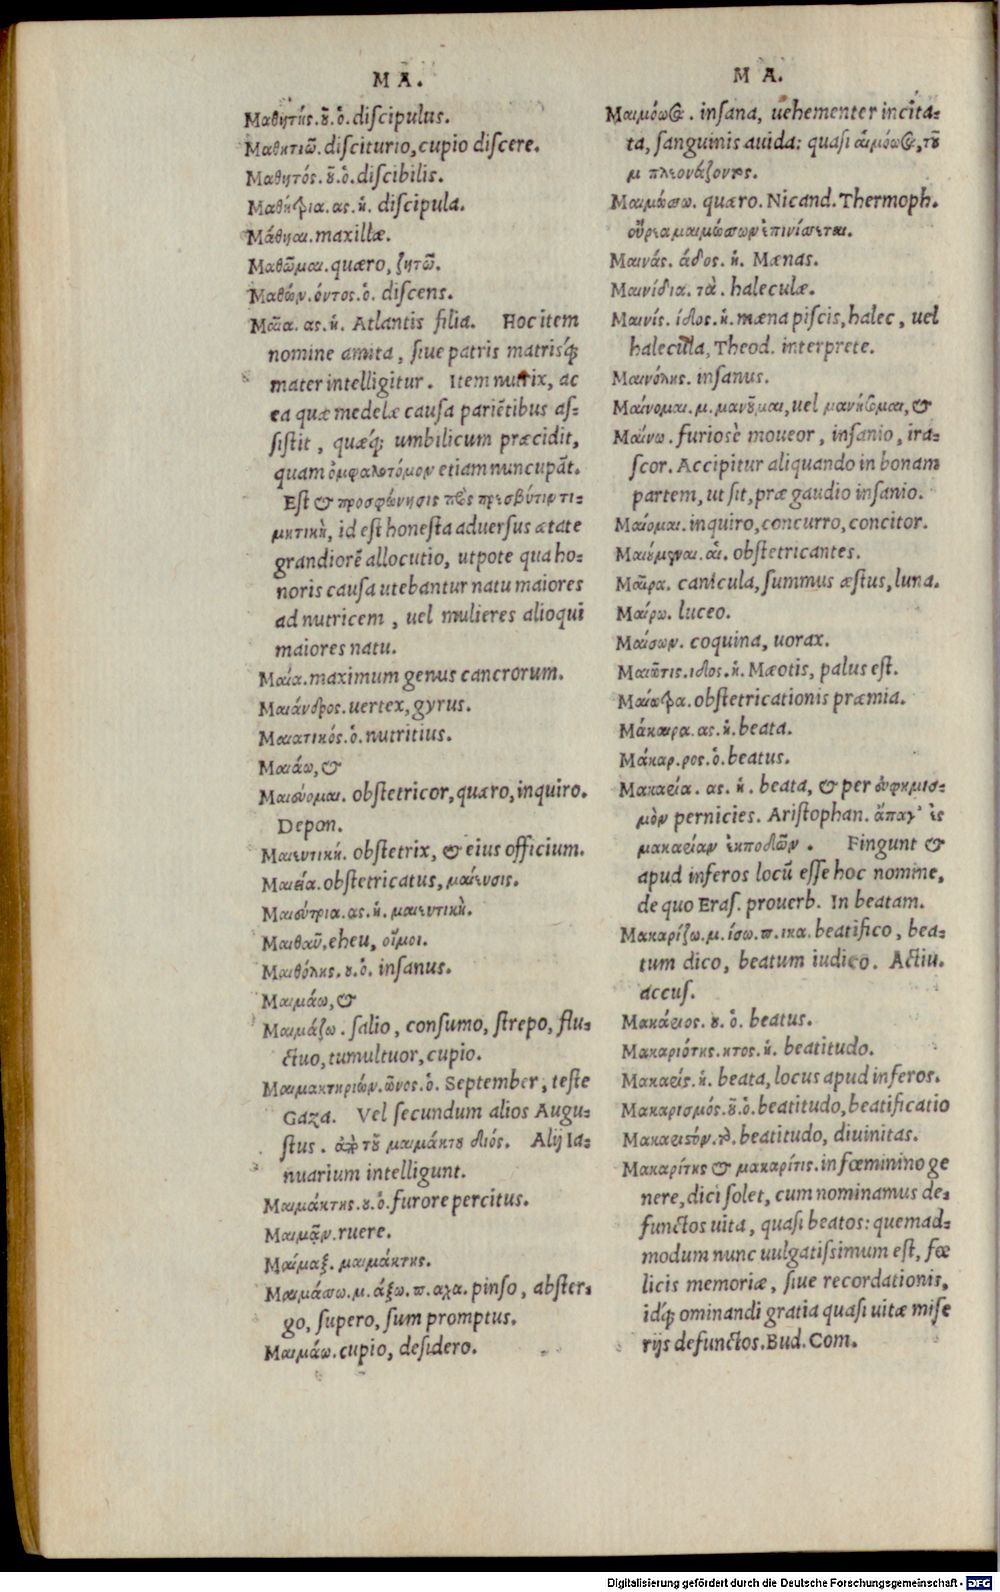 MA.
Μαθητής.ȣ͂.ὁ.discipulus.
Μαθητιῶ.disciturio,cupio discere.
Μαθητός.ȣ͂.ὁ.discibilis.
Μαθήτρια.ας.ἡ. discipula.
Μάθηαι.maxillæ.
Μαθῶμαι.quæro, ζητῶ.
Μαθών.όντος.ὁ. discens.
Μαῖα. ας.ἡ. Atlantis filia. Hoc item
nomine amita, siue patris matrisq́;
mater intelligitur. Item nutrix, ac
ea quæ medelæ causa pariẽtibus as-
sistit, quæq́; umbilicum præcidit,
quam ὀμφαλοτόμον etiam nuncupãt.
Est & προσφώνησις πρὸς πρεσβύτιν τι-
μητικὴ, id est honesta aduersus ætate
grandiorẽ allocutio, utpote qua ho-
noris causa utebantur natu maiores
ad nutricem, uel mulieres alioqui
maiores natu.
Μαία.maximum genus cancrorum.
Μαιάνδρος.uertex,gyrus.
Μαιατικός.ὁ.nutritius.
Μαιάω,&
Μαιεύομαι. obstetricor,quæro,inquiro.
Depon.
Μαιευτική. obstetrix, & eius officium.
Μαιεία.obstetricatus, μαίευσις.
Μαιεύτρια.ας.ἡ. μαιευτικὴ.
Μαιθαῦ.eheu, οἴμοι.
Μαιθόλης.ȣ.ὁ. insanus.
Μαιμάω,&
Μαιμάζω. salio, consumo, strepo, flu-
ctuo,tumultuor,cupio.
Μαιμακτηριών.ῶνος.ὁ. September, teste
Gaza. Vel secundum alios Augu-
stus. ἀπὸ τȣ͂ μαιμάκτȣ διός. Alij Ia-
nuarium intelligunt.
Μαιμάκτης.ȣ.ὁ.furore percitus.
Μαιμᾷν.ruere.
Μαίμαξ. μαιμάκτης.
Μαιμάσω.μ.άξω.π.αχα.pinso, abster-
go, supero, sum promptus.
Μαιμάω.cupio, desidero.
MA.
Μαιμόωσα. insana, uehementer incita-
ta, sanguinis auida: quasi αἱμόωσα,τȣ͂
μ πλεονάζοντος.
Μαιμώσω. quæro. Nicand. Thermoph.
οὔρεα μαιμώσσων ἐπινίσεται.
Μαινάς. άδος. ἡ. Mænas.
Μαινίδια. τὰ. haleculæ.
Μαινίς. ίδος.ἡ.mæna piscis,halec, uel
halecula, Theod. interprete.
Μαινόλης. insanus.
Μαίνομαι.μ.μανȣ͂μαι,uel μανήσομαι,&
Μαίνω. furiosè moueor, insanio, ira-
scor. Accipitur aliquando in bonam
partem, ut sit, præ gaudio insanio.
Μαίομαι.inquiro,concurro,concitor.
Μαιούμεναι.αἱ. obstetricantes.
Μαῖρα. canicula, summus æstus, luna.
Μαίρω. luceo.
Μαίσων. coquina, uorax.
Μαιῶτις.ιδος.ἡ. Mæotis, palus est.
Μαίωτρα.obstetricationis præmia.
Μάκαιρα.ας.ἡ.beata.
Μάκαρ.ρος.ὁ.beatus.
Μακαρία. ας. ἡ. beata, & per εὐφημισ-
μὸν pernicies. Aristophan. ἄπαγ' ἐς
μακαρίαν ἐκποδῶν. Fingunt &
apud inferos locũ esse hoc nomine,
de quo Eras. prouerb. In beatam.
Μακαρίζω.μ.ίσω.π.ικα.beatifico, bea-
tum dico, beatum iudico. Actiu.
accus.
Μακάριος. ȣ. ὁ. beatus.
Μακαριότης.ητος.ἡ. beatitudo.
Μακαρίς.ἡ. beata,locus apud inferos.
Μακαρισμός.ȣ͂.ὁ.beatitudo,beatificatio
Μακαριστόν.τὸ.beatitudo, diuinitas.
Μακαρίτης & μακαρίτις.in fœminino ge
nere,dici solet, cum nominamus de-
functos uita, quasi beatos: quemad-
modum nunc uulgatissimum est, fœ
licis memoriæ, siue recordationis,
idq́; ominandi gratia quasi uitæ mise
rijs defunctos.Bud.Com.
Digitalisierung gefördert durch die Deutsche Forschungsgemeinschaft - DFG